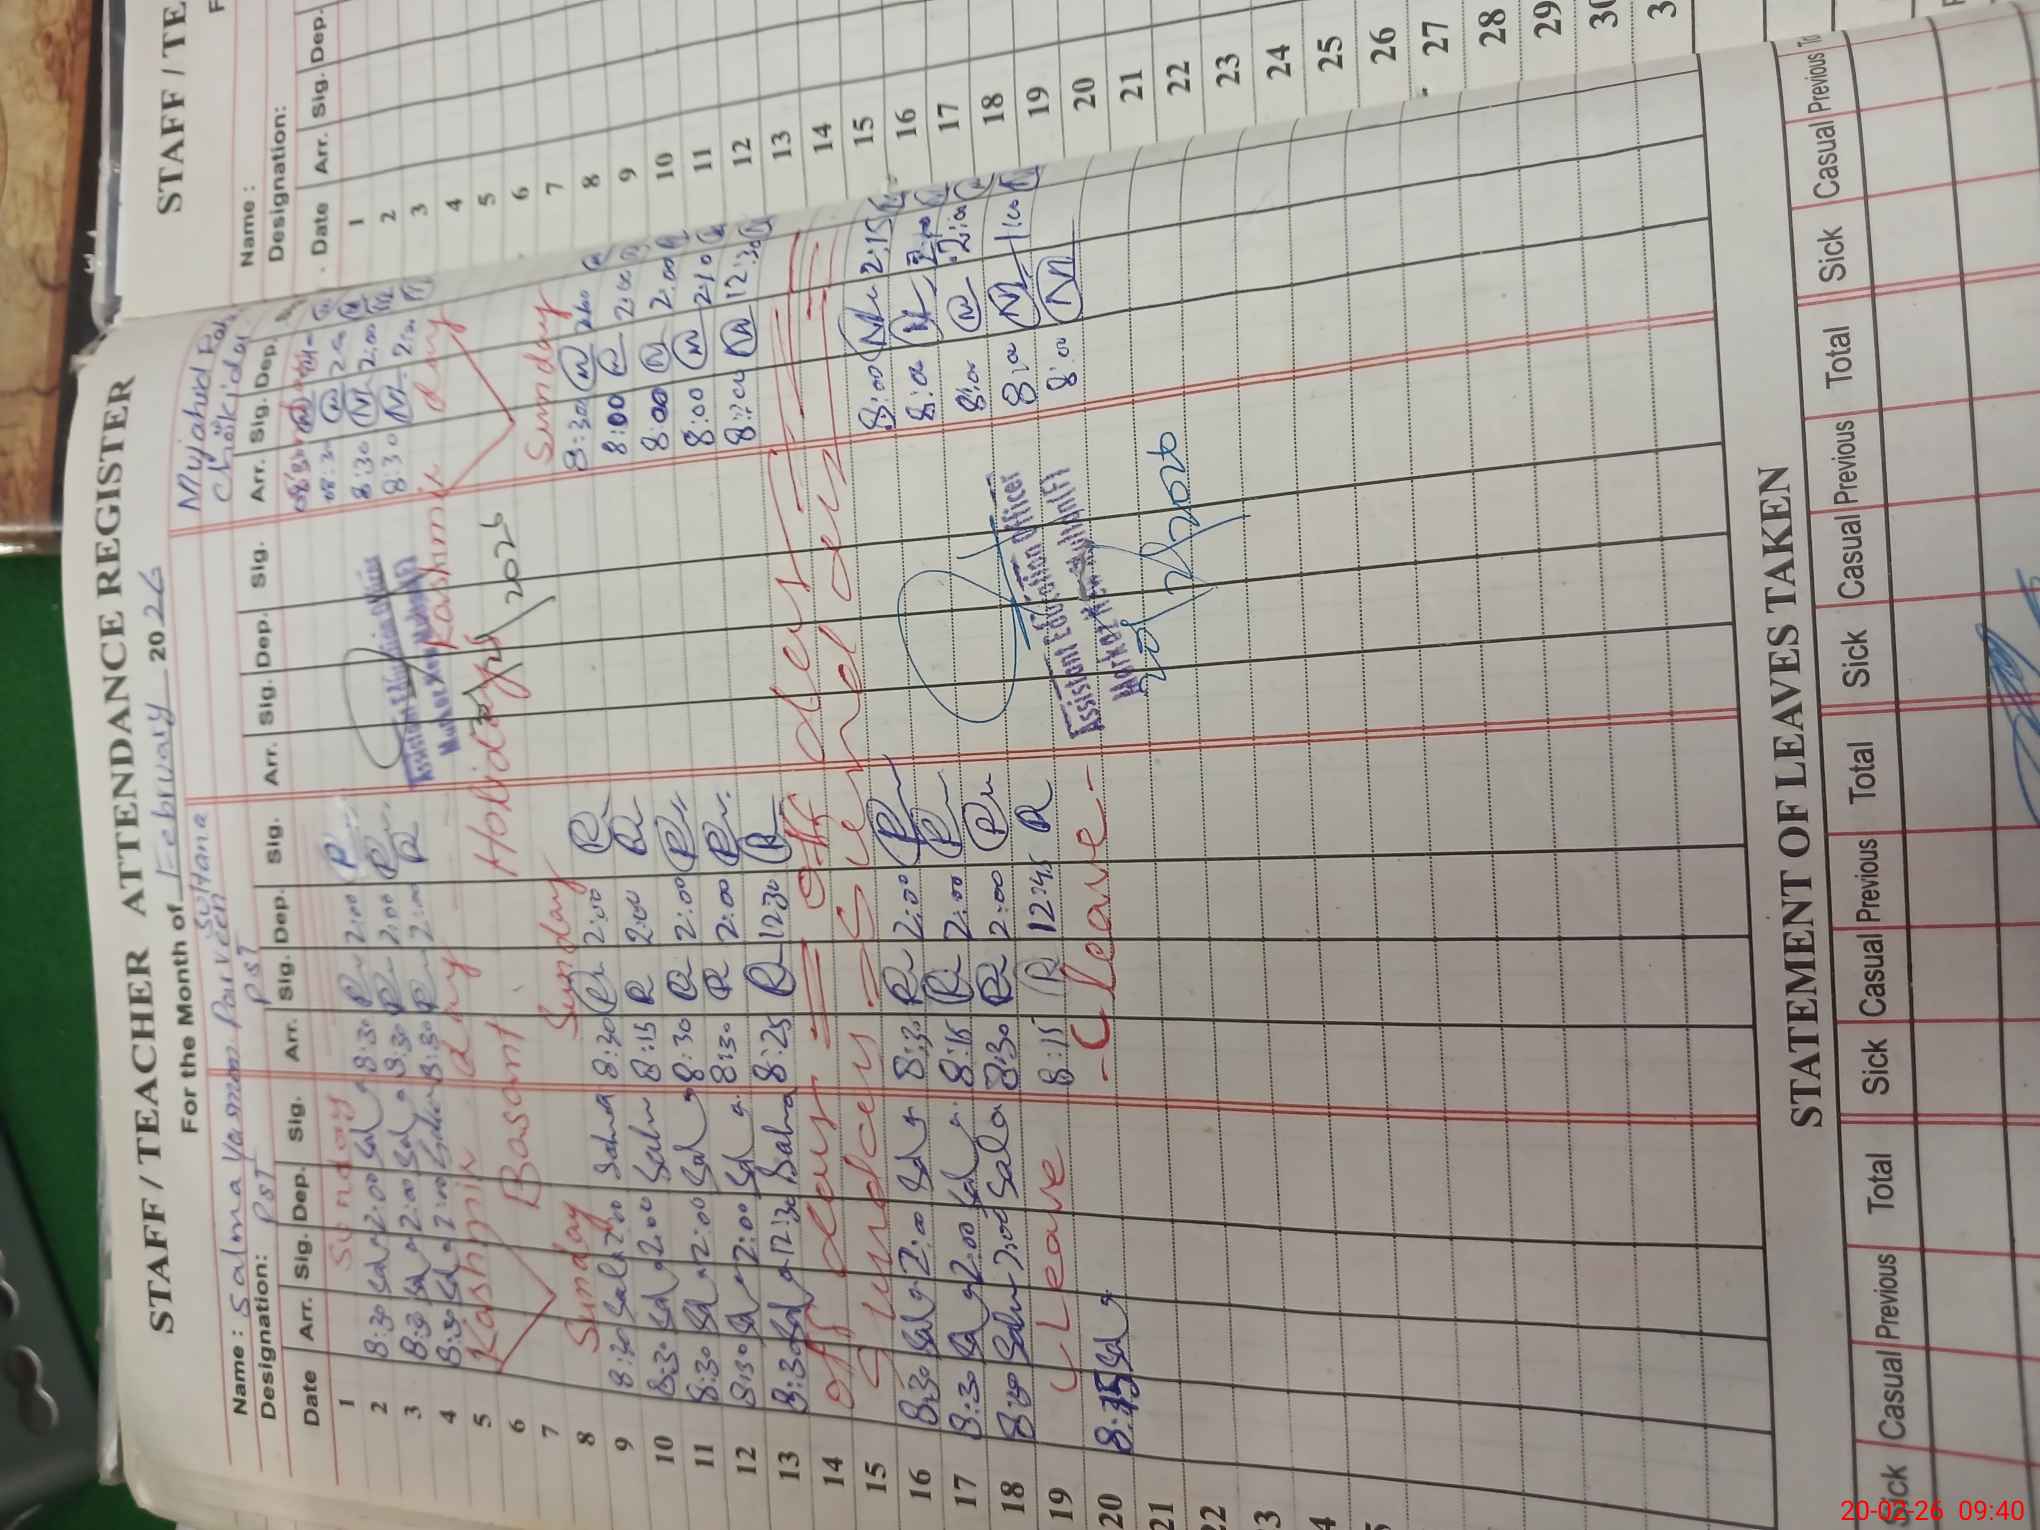 STAFF / TEACHER ATTENDANCE REGISTER
For the Month of February 2026
Name: Salma Yasmin Parveen Sultana Mujahid
Designation: PST PST Chokidar
Date Arr. Sig. Dep. Sig. Arr. Sig. Dep. Sig. Arr. Sig. Dep. Sig. Arr. Sig. Dep.
1 Sunday
2 8:30 Sal 2:00 Sal 8:30 R 2:00 R 8:30 N
3 8:30 Sal 2:00 Sal 8:30 R 2:00 R 8:30 N 2:00
4 8:30 Sal 2:00 8:30 R 2:00 R 8:30 N 2:00
5 Kashmir day Kashmir day
6 Basant Holidays
7
8 Sunday Sunday Sunday
9 8:30 Sal 2:00 Salma 8:30 R 2:00 R 8:30 N
10 8:30 Sal 2:00 Salm 8:15 R 2:00 R 8:00 N 2:00
11 8:30 Sal 2:00 Sal 8:30 R 2:00 R 8:00 N 2:00
12 8:30 Sal 2:00 Sal 8:30 R 2:00 R 8:00 N 2:10
13 8:30 Sal 12:30 Salma 8:25 R 12:30 R 8:00 N 12:30
14 off day off day
15 Sunday Sunday
16 8:30 Sal 2:00 Sal 8:30 R 2:00 R 8:00 N 2:15
17 8:30 Sal 2:00 Sal 8:15 R 2:00 R 8:00 N 2:00
18 8:30 Salm 2:00 Sala 8:30 R 2:00 R 8:00 N 2:00
19 Leave 8:15 R 12:45 R 8:00 N 1:00
20 8:45 Sal Leave 8:00 N
21
22
Assistant Education Officer
2026
Assistant Education Officer
Markaz New Multan (F)
2026
STATEMENT OF LEAVES TAKEN
Sick Casual Previous Total Sick Casual Previous Total Sick Casual Previous Total Sick Casual Previous
STAFF / TE
Name :
Designation:
Date Arr. Sig. Dep.
1
2
3
4
5
6
7
8
9
10
11
12
13
14
15
16
17
18
19
20
21
22
23
24
25
26
27
28
29
20-02-26 09:40